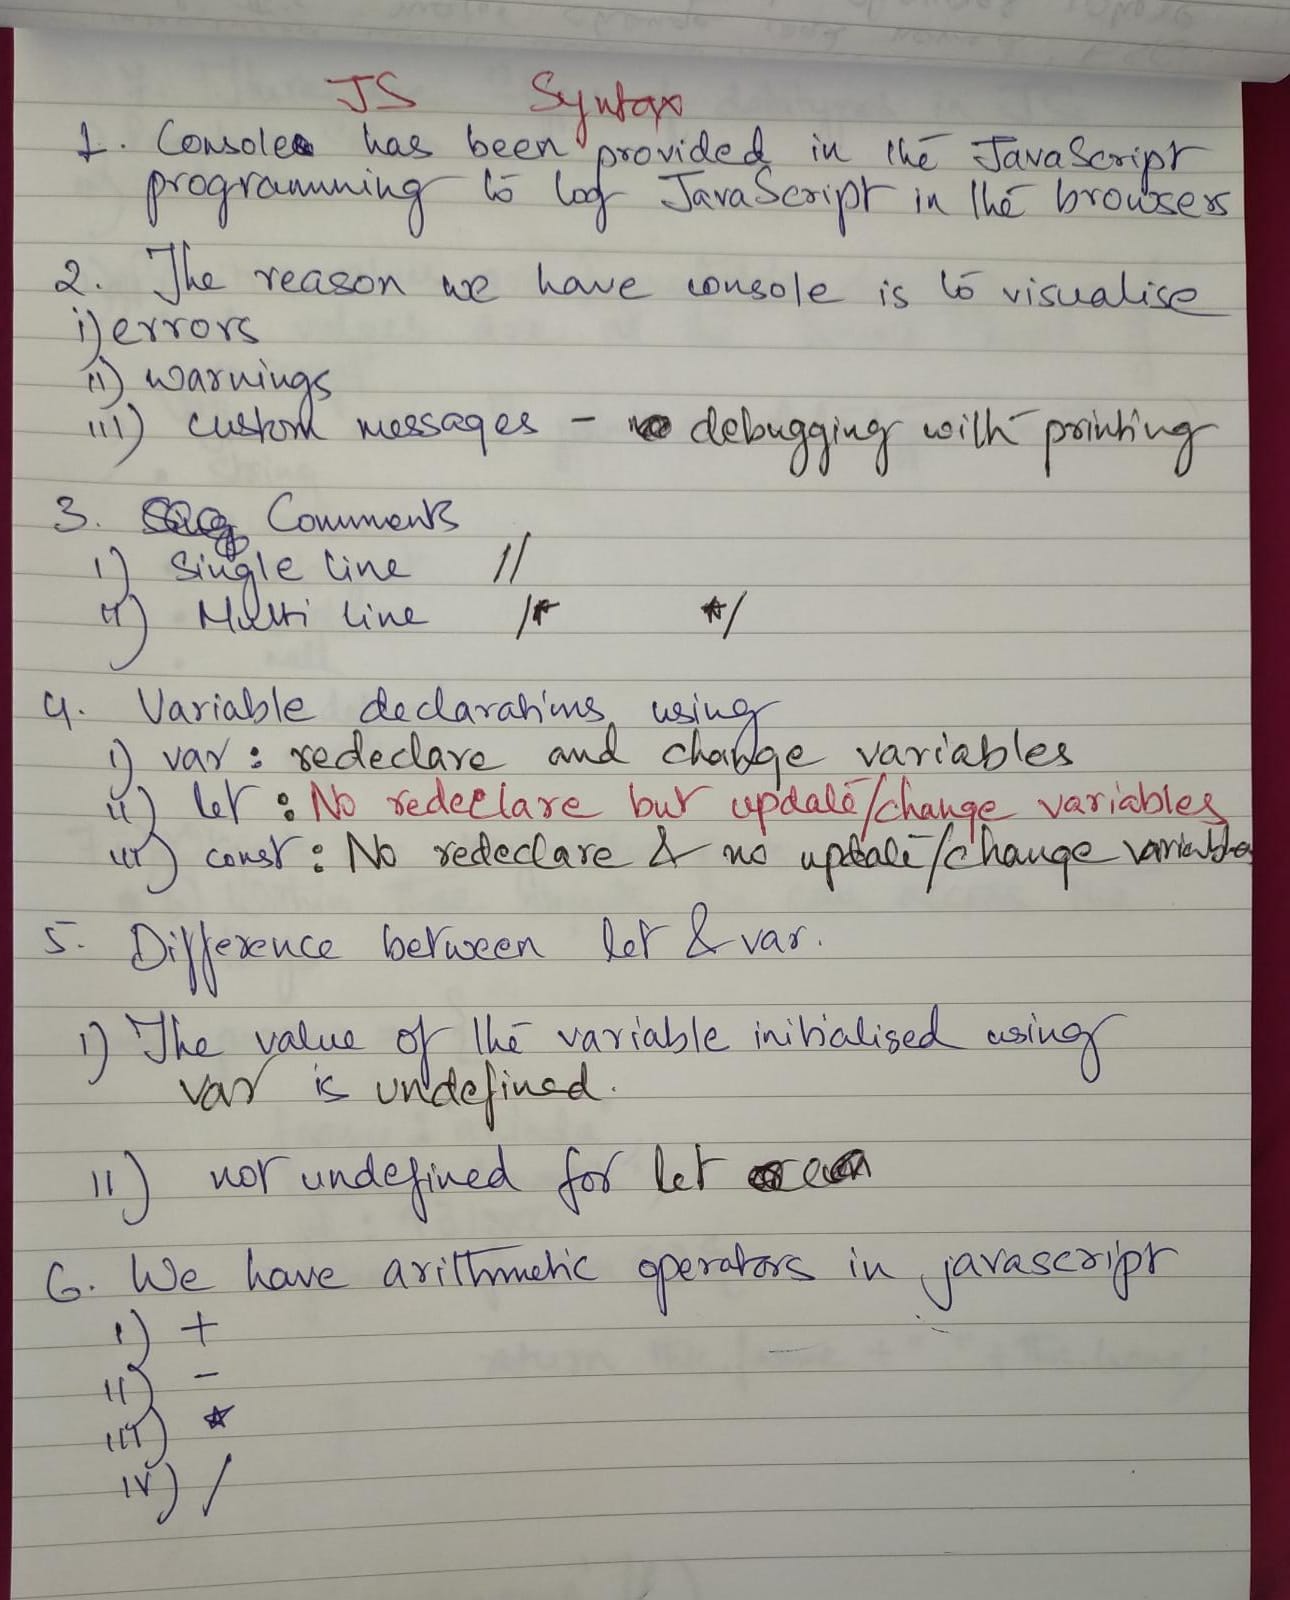 JS Syntax
1. Console has been provided in the JavaScript
programming to log JavaScript in the browsers
2. The reason we have console is to visualise
i) errors
ii) warnings
iii) custom messages - debugging with printing
3. Comments
i) Single line //
ii) Multi line /* */
4. Variable declarations using
i) var: redeclare and change variables
ii) let: No redeclare but update/change variables
iii) const: No redeclare & no update/change variables
5. Difference between let & var.
i) The value of the variable initialised using
var is undefined.
ii) not undefined for let
6. We have arithmetic operators in javascript
i) +
ii) -
iii) *
iv) /